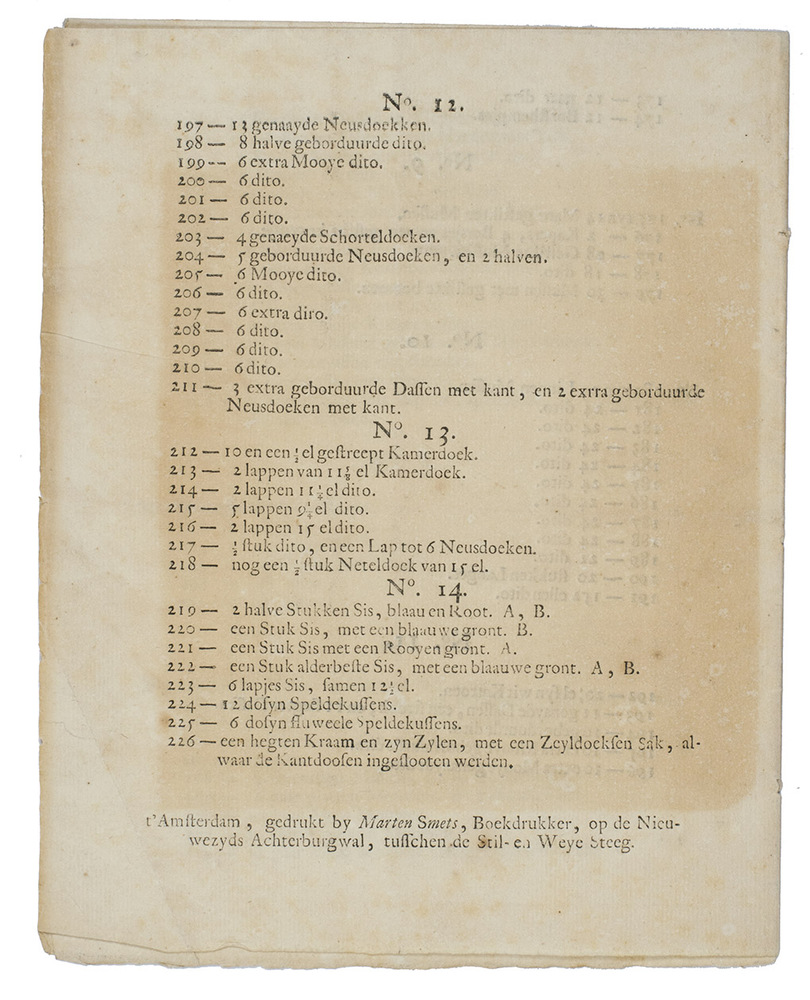 Nº. 12.
197 — 13 genaayde Neusdoekken.
198 — 8 halve geborduurde dito.
199 — 6 extra Mooye dito.
200 — 6 dito.
201 — 6 dito.
202 — 6 dito.
203 — 4 genaeyde Schorteldoeken.
204 — 5 geborduurde Neusdoeken, en 2 halven.
205 — 6 Mooye dito.
206 — 6 dito.
207 — 6 extra diro.
208 — 6 dito.
209 — 6 dito.
210 — 6 dito.
211 — 3 extra geborduurde Daſſen met kant, en 2 exrra geborduurde
Neusdoeken met kant.
Nº. 13.
212 — 10 en een ½ el geſtreept Kamerdoek.
213 — 2 lappen van 11 el Kamerdoek.
214 — 2 lappen 11¼ el dito.
215 — 5 lappen 9¼ el dito.
216 — 2 lappen 15 el dito.
217 — ½ ſtuk dito, en een Lap tot 6 Neusdoeken.
218 — nog een ½ ſtuk Neteldoek van 15 el.
Nº. 14.
219 — 2 halve Stukken Sis, blaau en Root. A, B.
220 — een Stuk Sis, met een blaauwe gront. B.
221 — een Stuk Sis met een Rooyen gront. A.
222 — een Stuk alderbeſte Sis, met een blaauwe gront. A, B.
223 — 6 lapjes Sis, ſamen 12½ el.
224 — 12 doſyn Speldekuſſens.
225 — 6 doſyn fluweele Speldekuſſens.
226 — een hegten Kraam en zyn Zylen, met een Zeyldoekſen Sak, al-
waar de Kantdooſen ingeſlooten werden.
t'Amſterdam, gedrukt by Marten Smets, Boekdrukker, op de Nieu-
wezyds Achterburgwal, tuſſchen de Stil- en Weye Steeg.